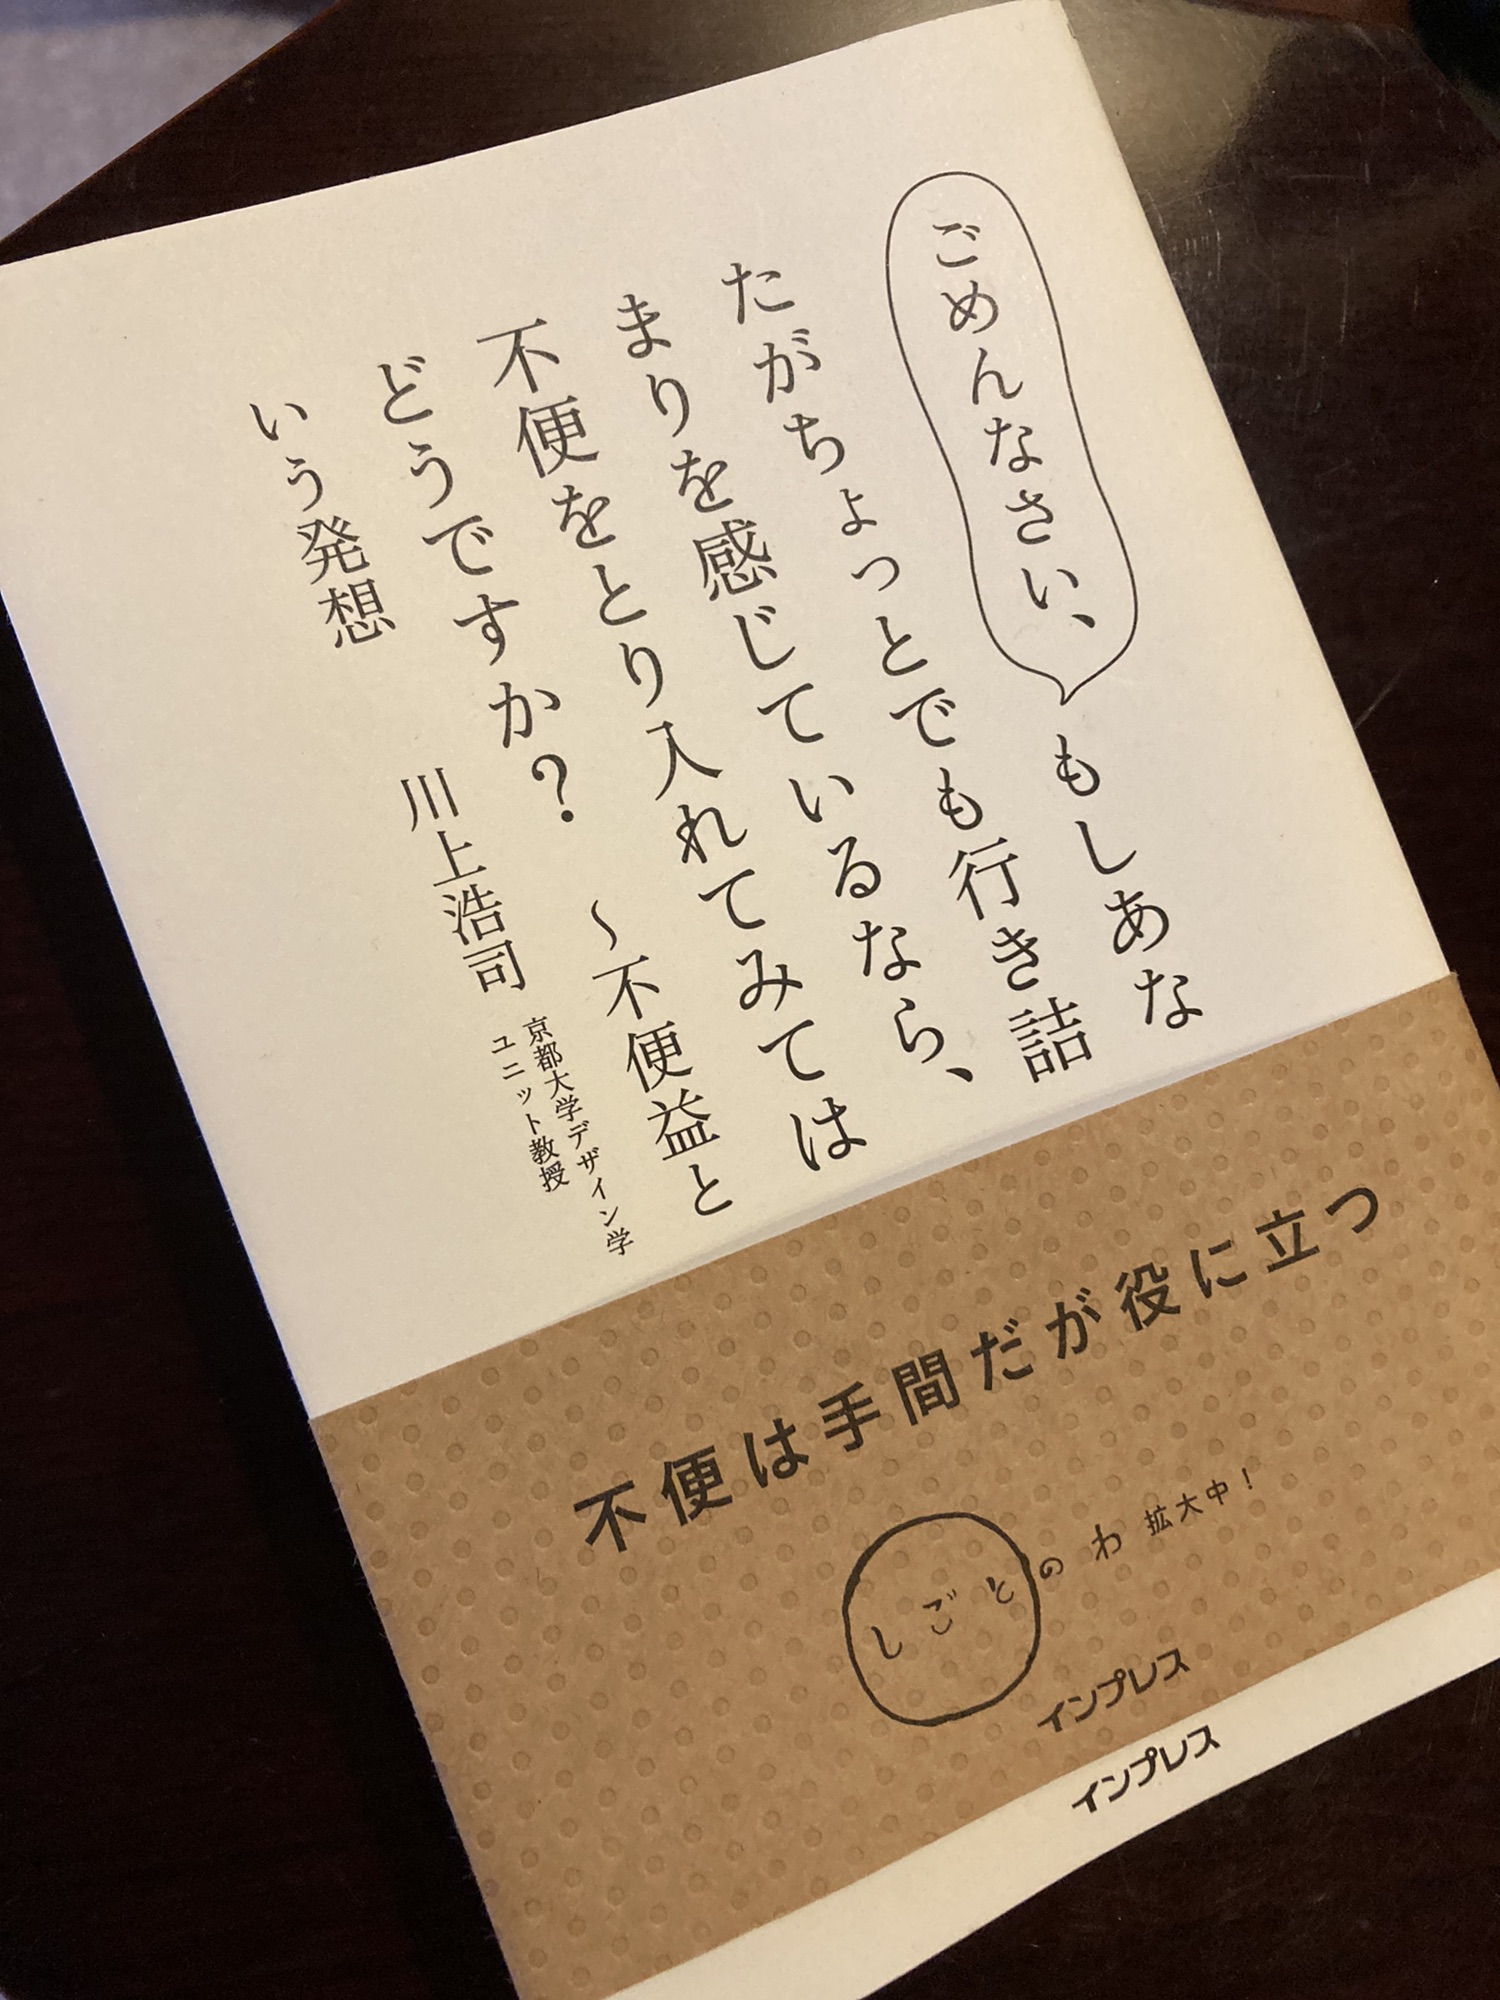 ごめんなさい、もしあな
たがちょっとでも行き詰
まりを感じているなら、
不便をとり入れてみては
どうですか？ ～不便益と
いう発想
川上浩司
京都大学デザイン学
ユニット教授
不便は手間だが役に立つ
しごとのわ 拡大中！
インプレス
インプレス